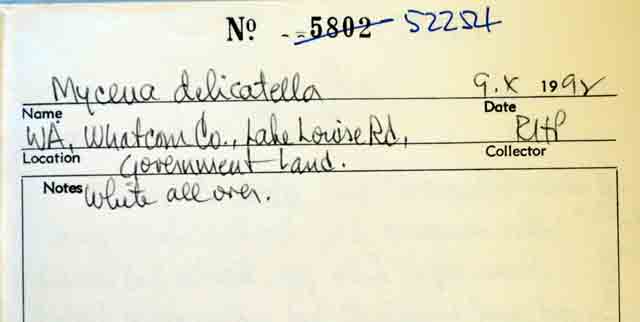 Nº --5802 52254
Mycena delicatella 9.X 1992
Name Date
WA, Whatcom Co., Lake Louise Rd, RHP
Location Government Land. Collector
Notes White all over.